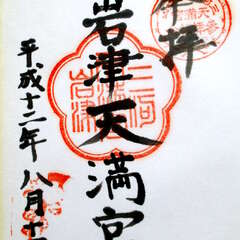 奉拝
岩津天満宮
平成十二年八月十